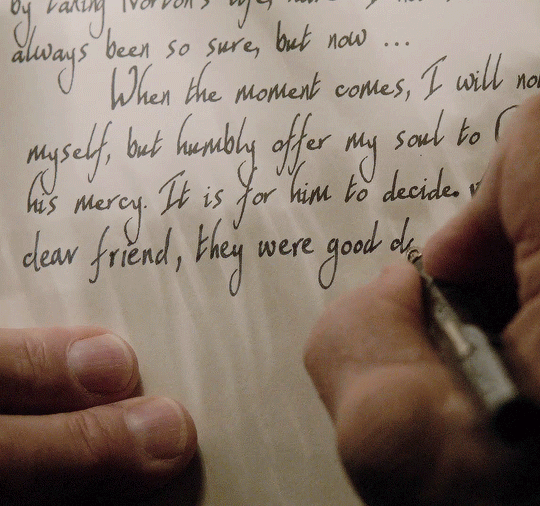 by taking
always been so sure, but now ...
When the moment comes, I will
myself, but humbly offer my soul to
his mercy. It is for him to decide.
dear friend, they were good